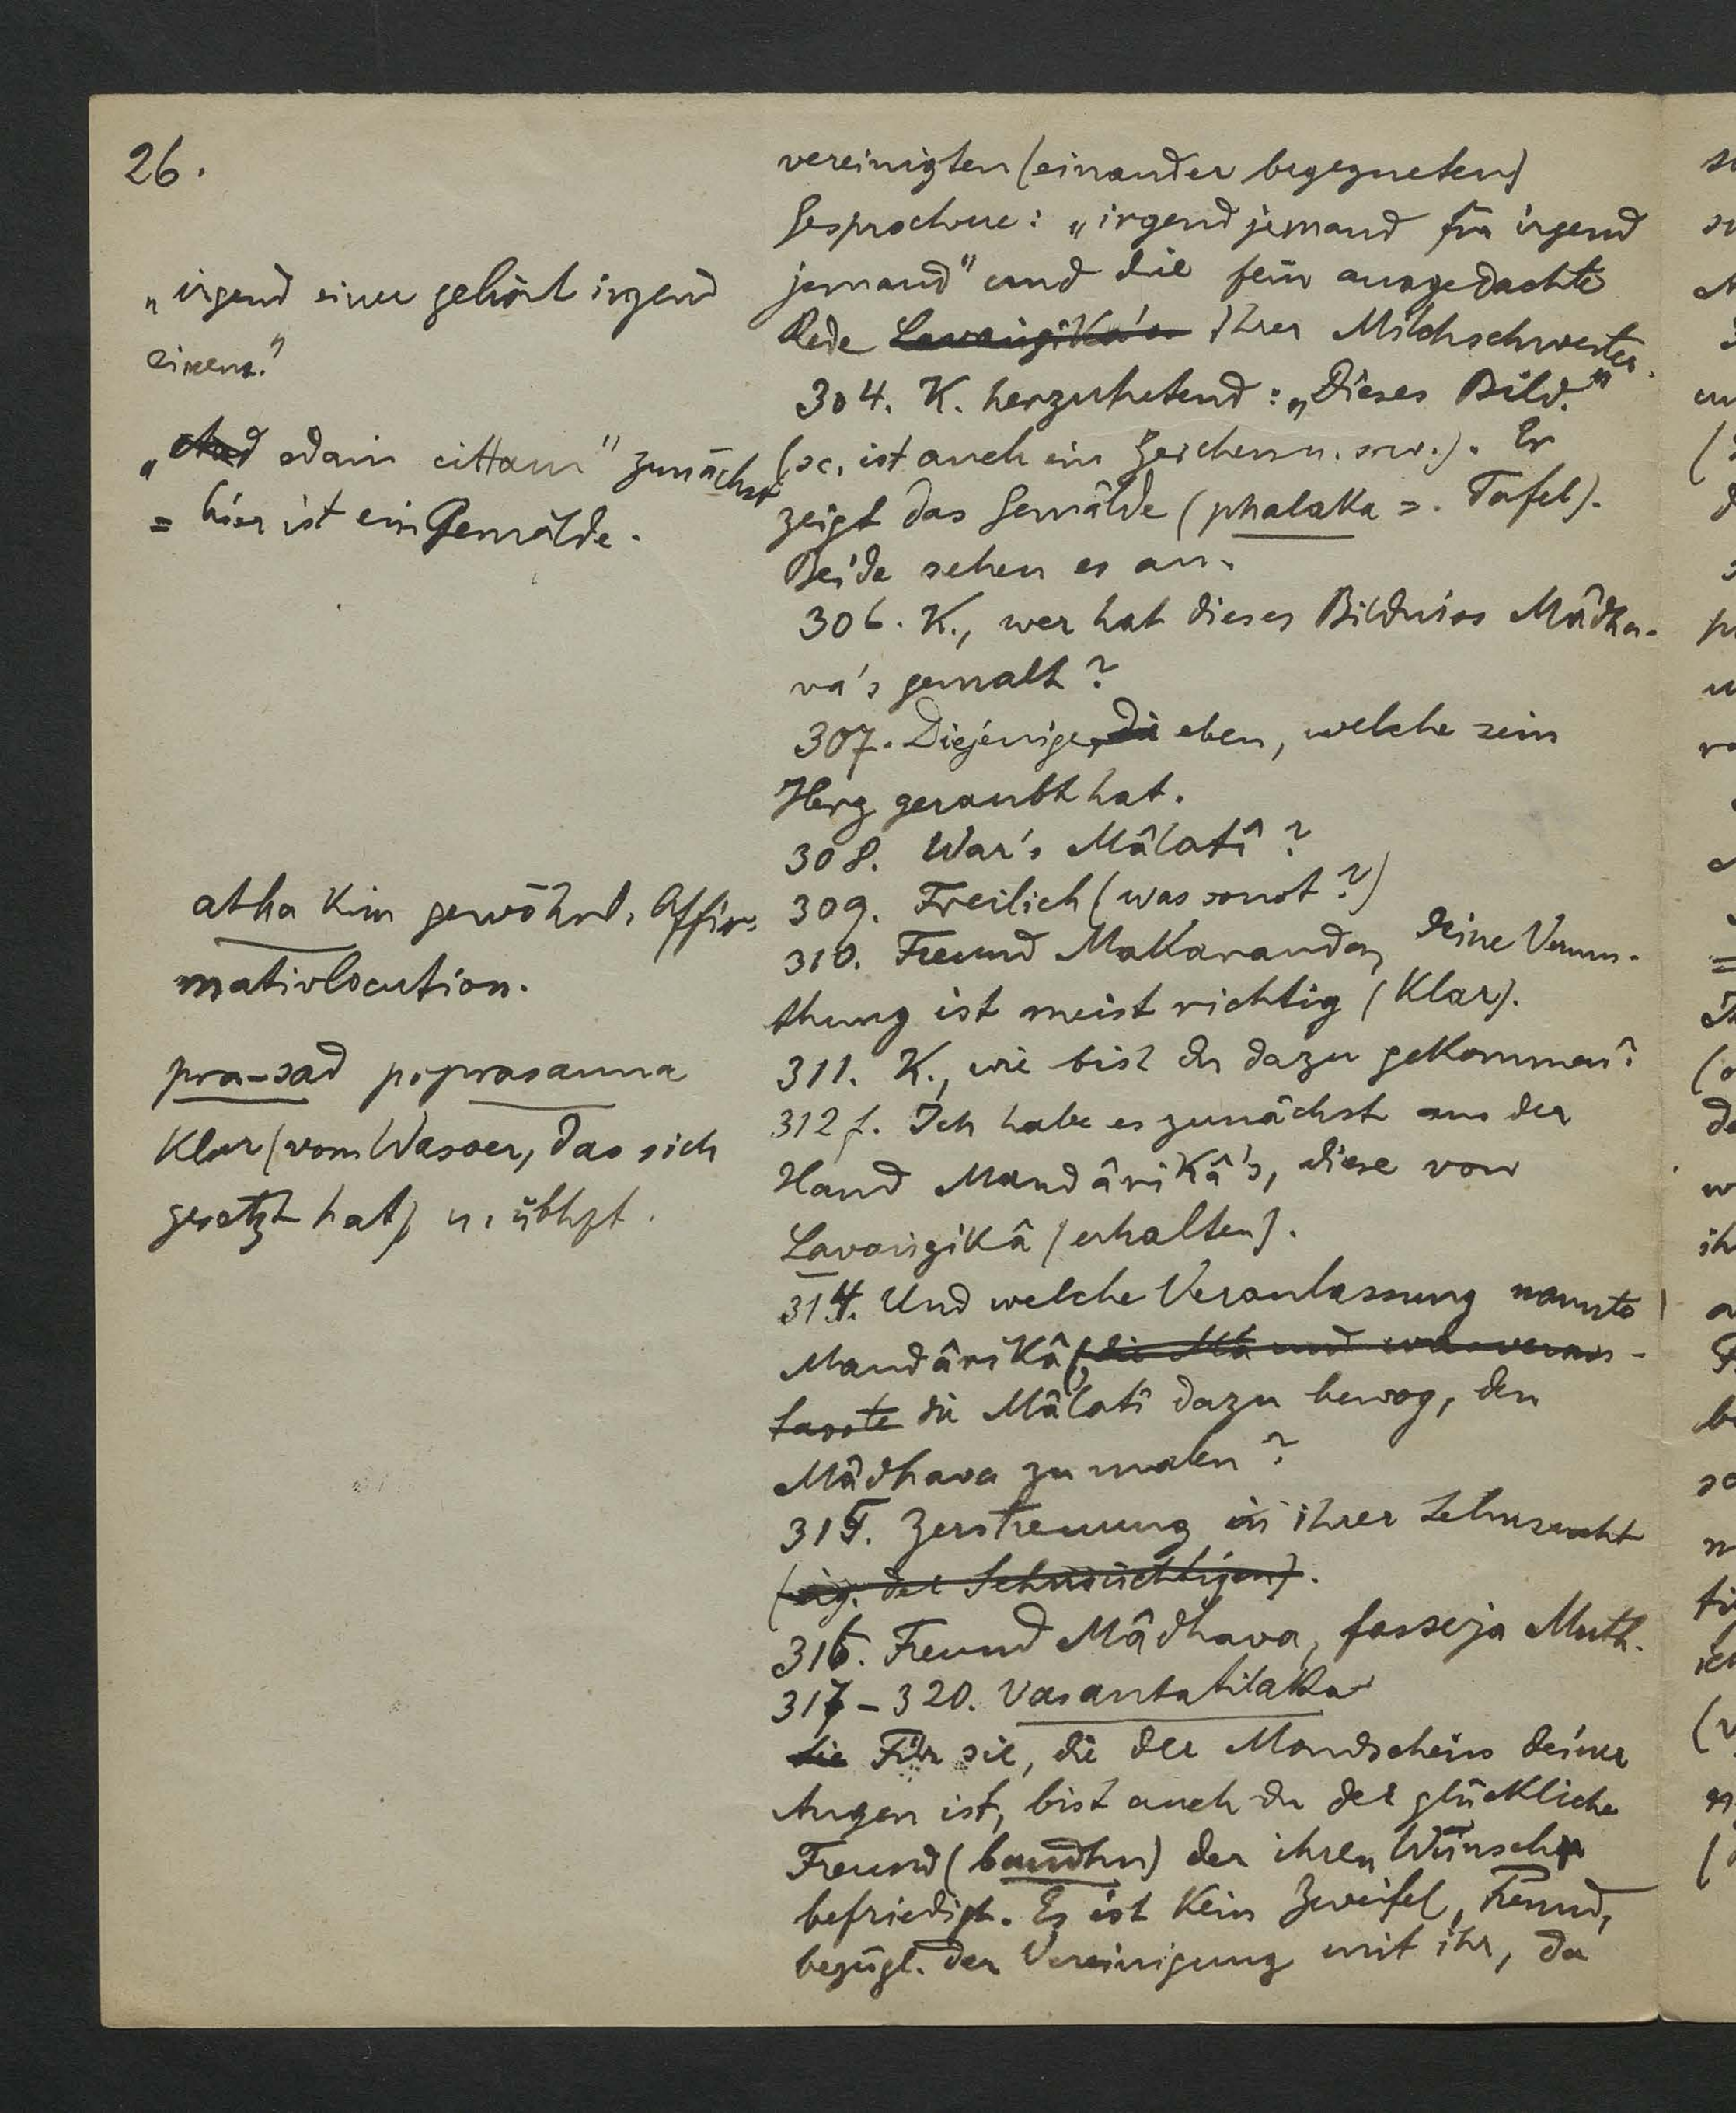 26.
„irgend einer gehört irgend
einem."
„ odam cittam" zunächst
= hier ist ein Gemälde.
atha kim gewöhnl. Affir-
mativlocution.
pra-sad pp prasanna
klar (vom Wasser, das sich
gesetzt hat) u. übhpt.
vereinigten (einander begegneten)
Gesprochene: „irgend jemand für irgend
jemand" und die fein ausgedachte
Rede Lavaṅgikâ's ihrer Milchschwester.
304. K. herzutretend: „Dieses Bild."
(sc. ist auch ein Zeichen u.s.w.). Er
zeigt das Gemälde (phalaka =. Tafel).
Beide sehen es an.
306. K., wer hat dieses Bildniss Mâdha-
va's gemalt?
307. Diejenige, die eben, welche sein
Herz geraubt hat.
308. War's Mâlatî?
309. Freilich (was sonst?)
310. Freund Makaranda, deine Vermu-
thung ist meist richtig (klar).
311. K., wie bist du dazu gekommen?
312 f. Ich habe es zunächst aus der
Hand Mandârikâ's, diese von
Lavaṅgikâ (erhalten).
314. Und welche Veranlassung nannte
Mandârikâ, die Mâ und was veran-
lasste die Mâlatî dazu bewog, den
Mâdhava zu malen?
315. Zerstreuung in ihrer Sehnsucht
(eig. der Sehnsüchtigen).
316. Freund Mâdhava, fasse ja Muth.
317 - 320. Vasantatilaka
Sie Für sie, die der Mondschein deiner
Augen ist, bist auch du der glückliche
Freund (bandhu) der ihren Wunsch
befriedigt. Es ist kein Zweifel, Freund,
bezügl. der Vereinigung mit ihr, da